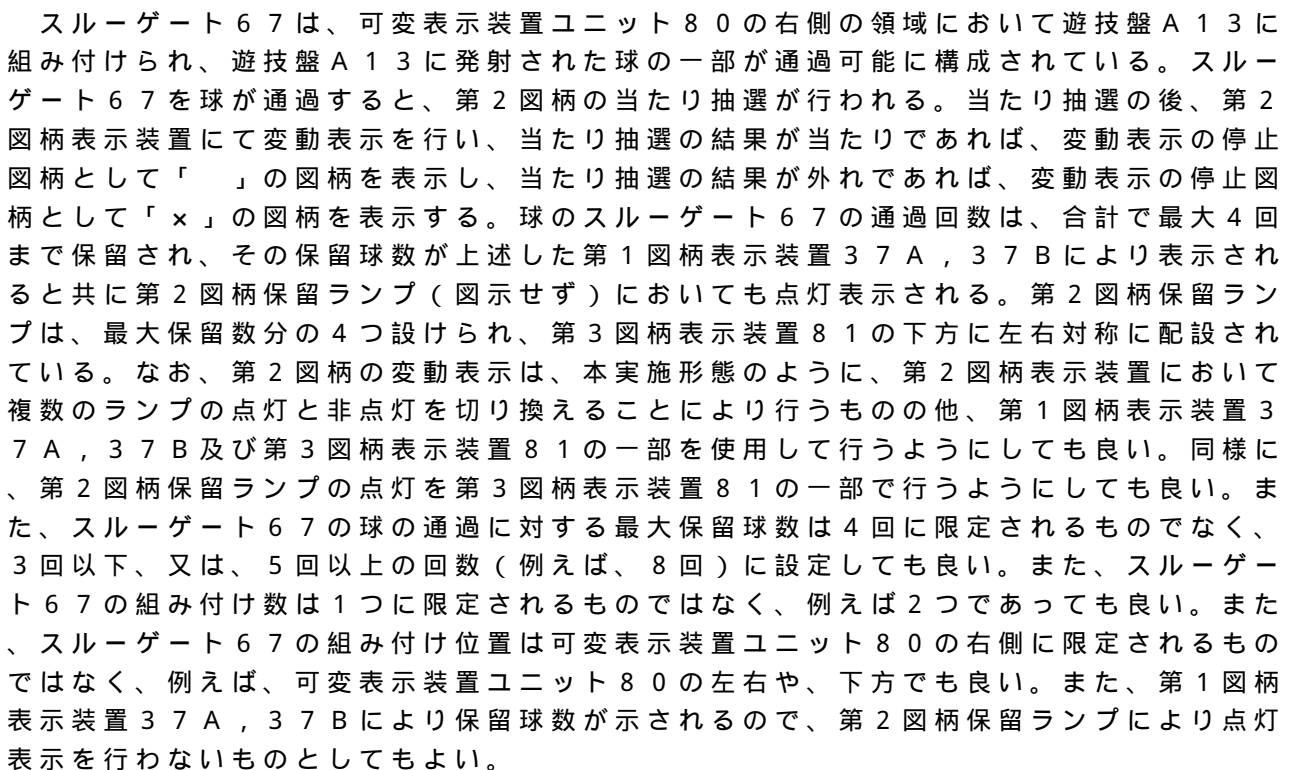 スルーゲート６７は、可変表示装置ユニット８０の右側の領域において遊技盤Ａ１３に
組み付けられ、遊技盤Ａ１３に発射された球の一部が通過可能に構成されている。スルー
ゲート６７を球が通過すると、第２図柄の当たり抽選が行われる。当たり抽選の後、第２
図柄表示装置にて変動表示を行い、当たり抽選の結果が当たりであれば、変動表示の停止
図柄として「　」の図柄を表示し、当たり抽選の結果が外れであれば、変動表示の停止図
柄として「×」の図柄を表示する。球のスルーゲート６７の通過回数は、合計で最大４回
まで保留され、その保留球数が上述した第１図柄表示装置３７Ａ，３７Ｂにより表示され
ると共に第２図柄保留ランプ（図示せず）においても点灯表示される。第２図柄保留ラン
プは、最大保留数分の４つ設けられ、第３図柄表示装置８１の下方に左右対称に配設され
ている。なお、第２図柄の変動表示は、本実施形態のように、第２図柄表示装置において
複数のランプの点灯と非点灯を切り換えることにより行うものの他、第１図柄表示装置３
７Ａ，３７Ｂ及び第３図柄表示装置８１の一部を使用して行うようにしても良い。同様に
、第２図柄保留ランプの点灯を第３図柄表示装置８１の一部で行うようにしても良い。ま
た、スルーゲート６７の球の通過に対する最大保留球数は４回に限定されるものでなく、
３回以下、又は、５回以上の回数（例えば、８回）に設定しても良い。また、スルーゲー
ト６７の組み付け数は１つに限定されるものではなく、例えば２つであっても良い。また
、スルーゲート６７の組み付け位置は可変表示装置ユニット８０の右側に限定されるもの
ではなく、例えば、可変表示装置ユニット８０の左右や、下方でも良い。また、第１図柄
表示装置３７Ａ，３７Ｂにより保留球数が示されるので、第２図柄保留ランプにより点灯
表示を行わないものとしてもよい。